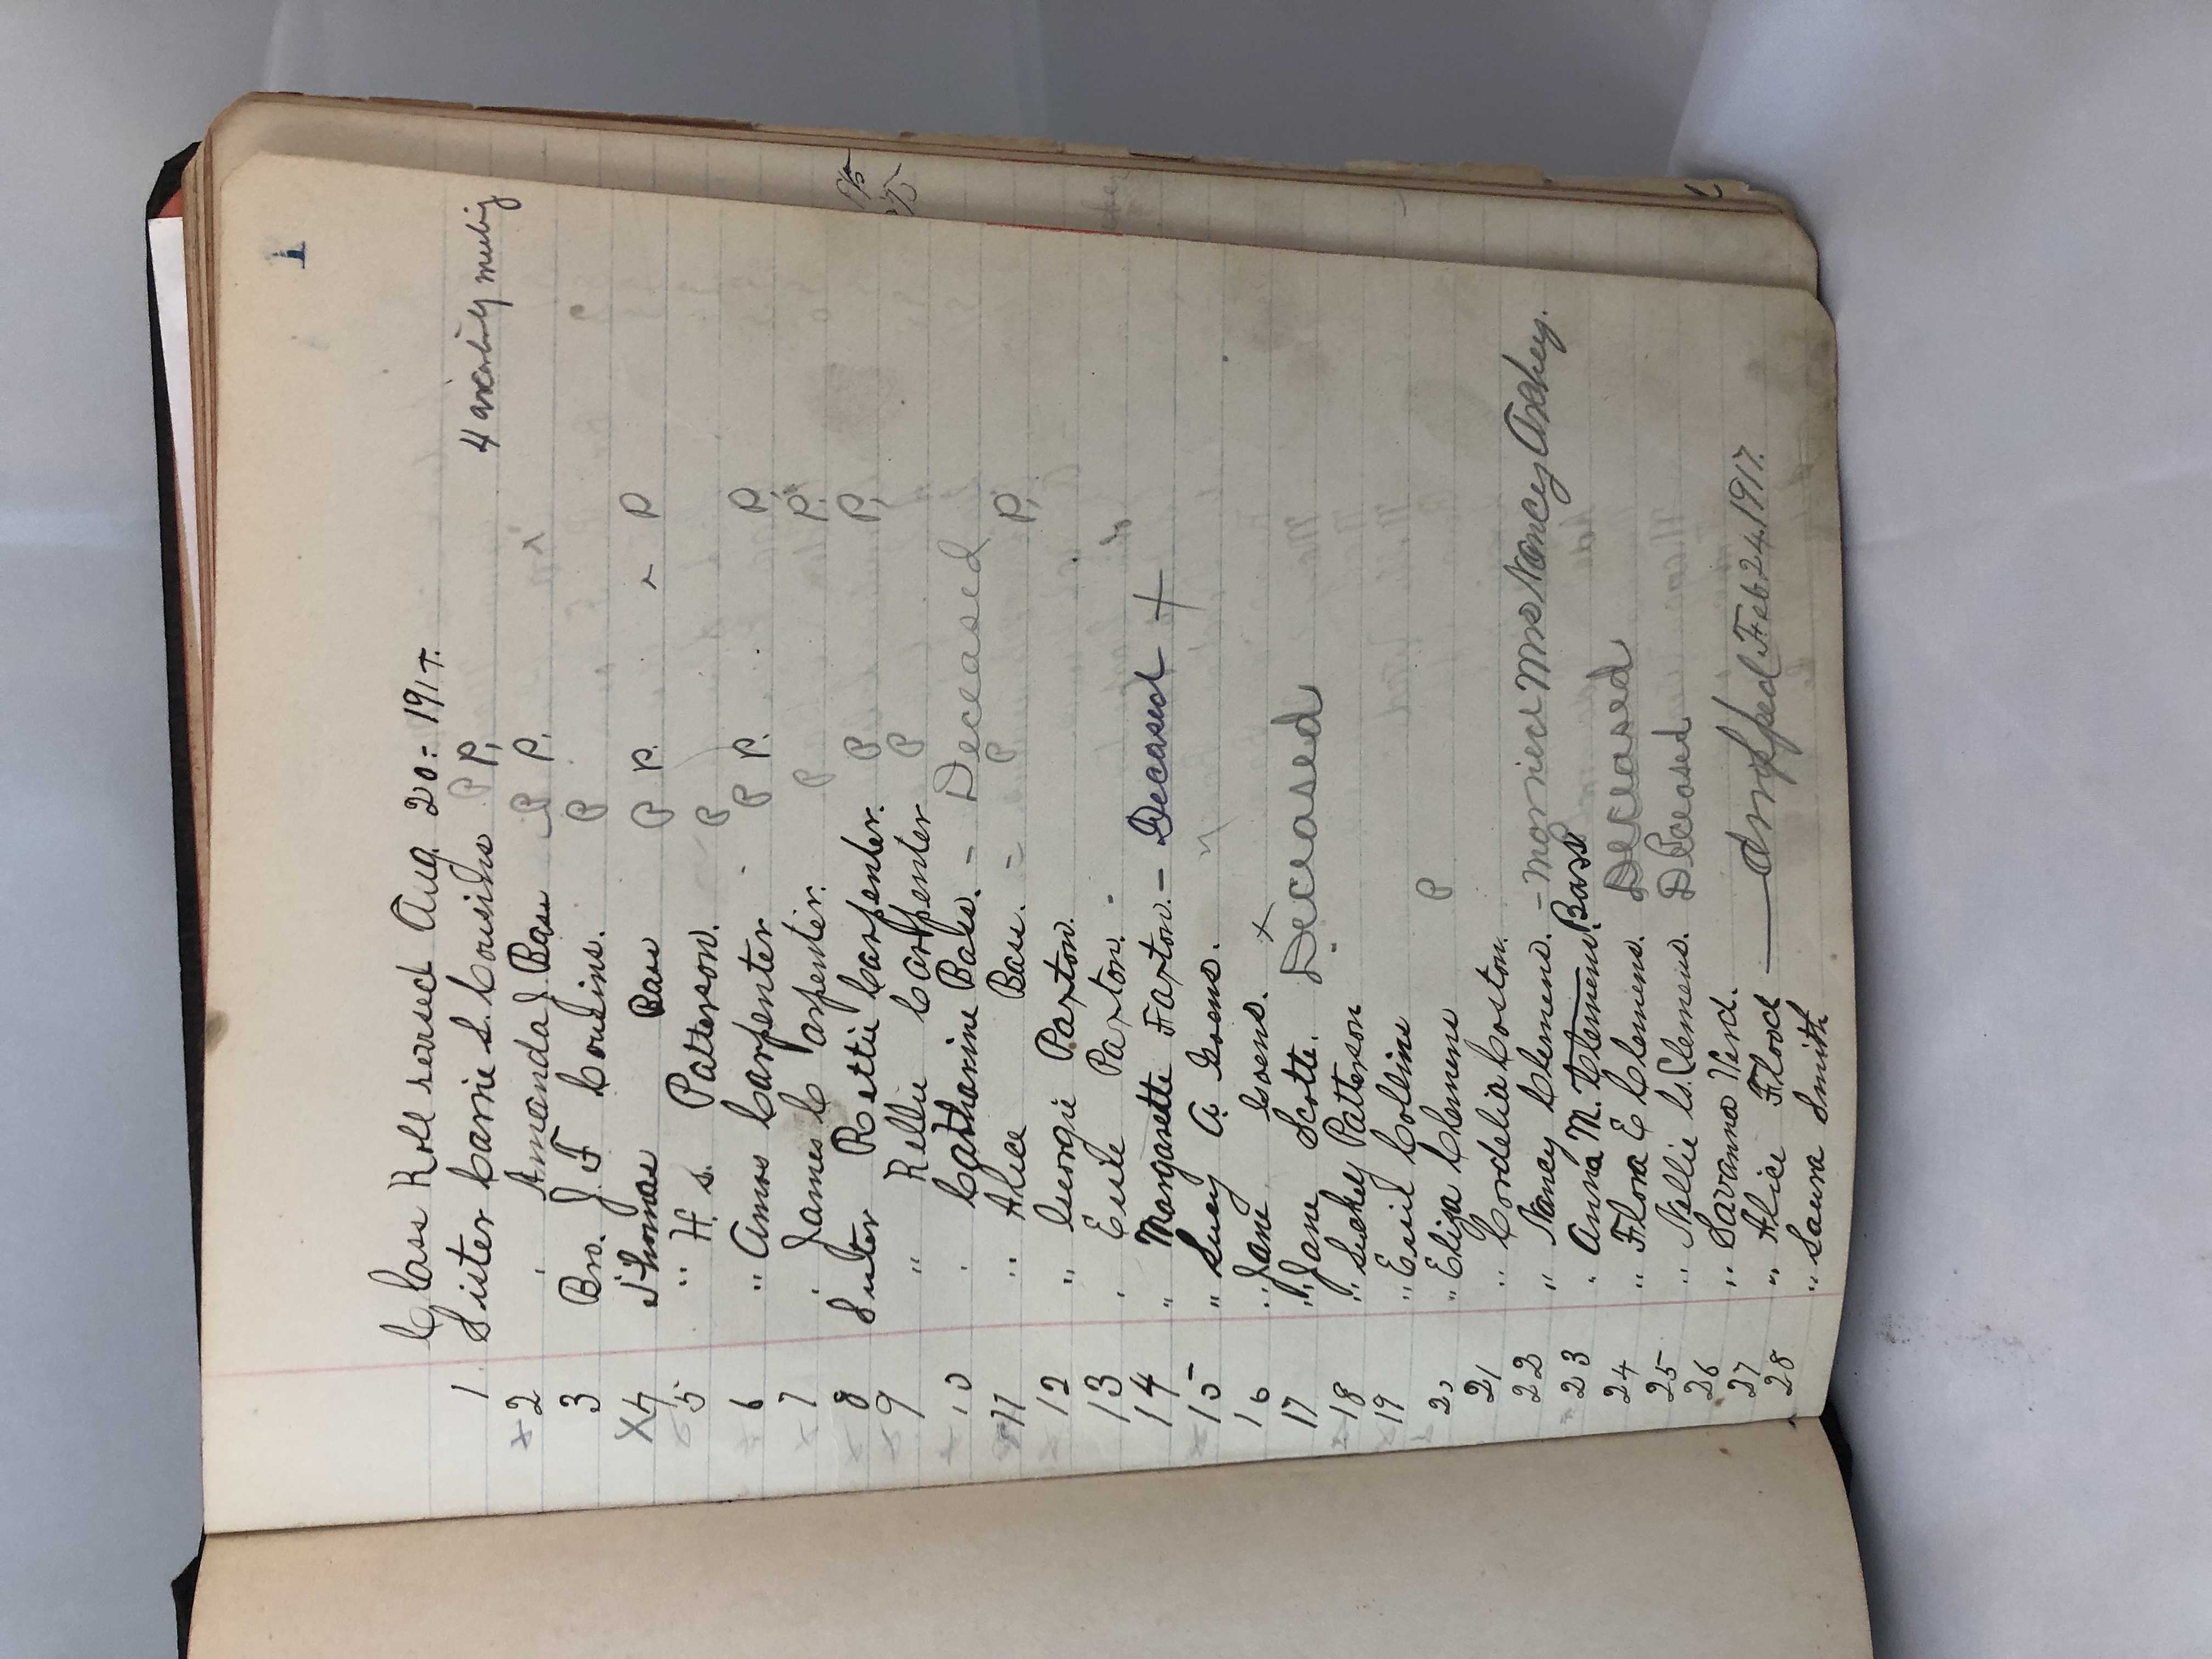 1
Class Roll revised Aug. 20 = 191
1 Sister Carrie S. Cousins P P, 4 meeting
x 2 " Amanda J. Bass P P. x
3 Bro. J. F Cousins. P
X 4 Thomas Bass P P. P
5 " H. s. Patterson. P
6 " Amos Carpenter P P. P,
7 " James Carpenter. P P.
8 Sister Rettie Carpenter. P P,
9 " Rellie Carpenter P
10 " Catharine Bass. - Deceased
11 " Alice Bass. = P P,
12 " Georgie Paxton.
13 " Essie Paxton. -
14 " Margarette Faxton. - Decased +
15 " Lucy A. Goens.
16 " Jane Goens. x
17 " Jane Scotte. Deceased
18 " Luckey Patterson
19 " Essie Collins
20 " Eliza Clemens P
21 " Cordelia Coston.
22 " Nancy Clemens. - married Mrs Nancy Archey.
23 " Anna M. Clemens. Bass
24 " Flora E Clemens. Deceased
25 " Nellie G. Clemens. Deceased
26 " Savanna Herd.
27 " Alice Flood — dropped Feb 24. 1917.
28 " Laura Smith